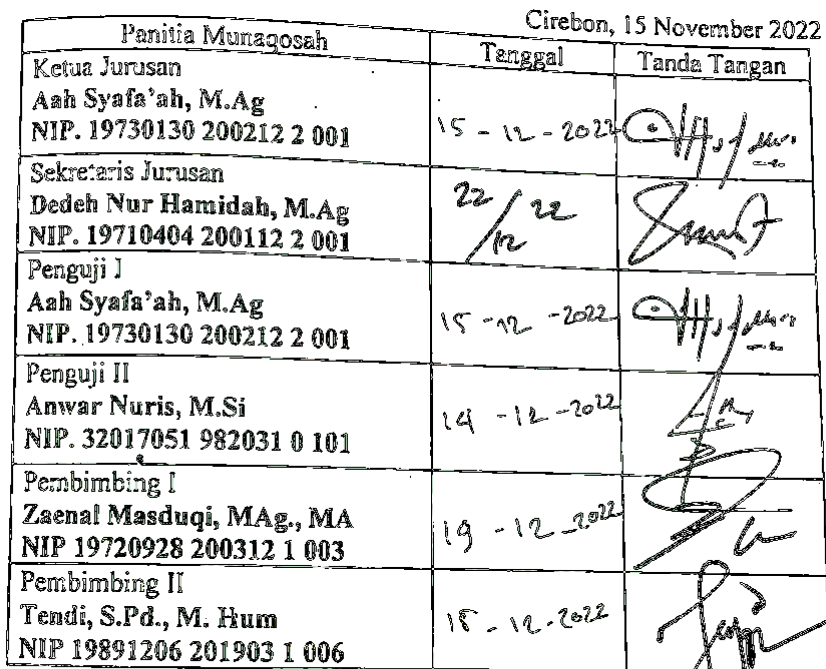 Cirebon, 15 November 2022
Panitia Munaqosah
Tanggal
Tanda Tangan
Ketua Jurusan
Aah Syafa'ah, M.Ag
NIP. 19730130 200212 2 001
15 - 12 - 2022
Sekretaris Jurusan
Dedeh Nur Hamidah, M.Ag
NIP. 19710404 200112 2 001
22/12 22
Penguji I
Aah Syafa'ah, M.Ag
NIP. 19730130 200212 2 001
15 - 12 - 2022
Penguji II
Anwar Nuris, M.Si
NIP. 32017051 982031 0 101
14 - 12 - 2022
Pembimbing I
Zaenal Masduqi, MAg., MA
NIP 19720928 200312 1 003
19 - 12 - 2022
Pembimbing II
Tendi, S.Pd., M. Hum
NIP 19891206 201903 1 006
- 12 - 2022